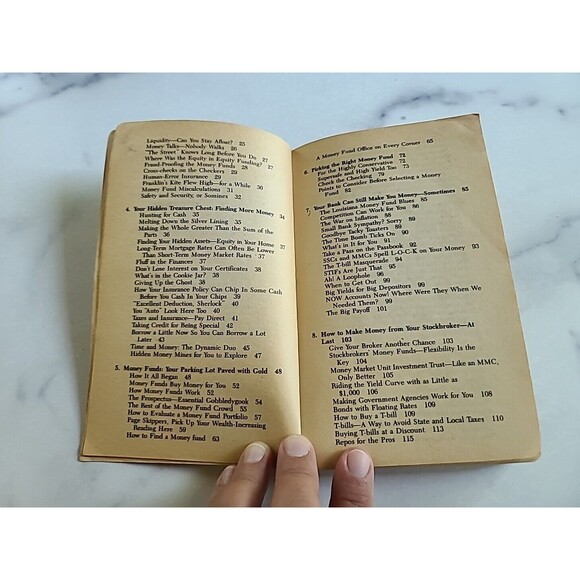 Liquidity—Can You Stay Afloat? 25
Money Talks—Nobody Walks 26
"The Street" Knows Long Before You Do 27
Where Was the Equity in Equity Funding? 27
Fraud-Proofing the Money Funds 28
Cross-checks on the Checkers 29
Human-Error Insurance 29
Franklin's Kite Flew High—for a While 30
Money Fund Miscalculations 31
Safety and Security, or Somines 32
4. Your Hidden Treasure Chest: Finding More Money 34
Hunting for Cash 35
Melting Down the Silver Lining 35
Making the Whole Greater Than the Sum of the
Parts 36
Finding Your Hidden Assets—Equity in Your Home 37
Long-Term Mortgage Rates Can Often Be Lower
Than Short-Term Money Market Rates 37
Fluff in the Finances 37
Don't Lose Interest on Your Certificates 38
What's in the Cookie Jar? 38
Giving Up the Ghost 38
How Your Insurance Policy Can Chip In Some Cash
Before You Cash In Your Chips 39
"Excellent Deduction, Sherlock" 40
You "Auto" Look Here Too 40
Taxes and Insurance—Pay Direct 41
Taking Credit for Being Special 42
Borrow a Little Now So You Can Borrow a Lot
Later 43
Time and Money: The Dynamic Duo 45
Hidden Money Mines for You to Explore 47
5. Money Funds: Your Parking Lot Paved with Gold 48
How It All Began 48
Money Funds Buy Money for You 52
How Money Funds Work 52
The Prospectus—Essential Gobbledygook 54
The Rest of the Money Fund Crowd 55
How to Evaluate a Money Fund Portfolio 57
Page Skippers, Pick Up Your Wealth-Increasing
Reading Here 59
How to Find a Money fund 63
A Money Fund Office on Every Corner 65
6. Picking the Right Money Fund 72
For the Highly Conservative 72
Supersafe and High Yield Too 73
Check the Checking 79
Points to Consider Before Selecting a Money
Fund 82
7. Your Bank Can Still Make You Money—Sometimes 85
The Louisiana Money Fund Blues 85
Competition Can Work for You 86
The War on Inflation 88
Small Bank Sympathy? Sorry 89
Goodbye Tacky Toasters 89
The Time Bomb Ticks On 90
What's in It for You 91
Take a Pass on the Passbook 92
SSCs and MMCs Spell L-O-C-K on Your Money 93
The T-bill Masquerade 94
STIFs Are Just That 95
Ah! A Loophole 96
When to Get Out 99
Big Yields for Big Depositors 99
NOW Accounts Now! Where Were They When We
Needed Them? 99
The Big Payoff 101
8. How to Make Money from Your Stockbroker—At
Last 103
Give Your Broker Another Chance 103
Stockbrokers' Money Funds—Flexibility Is the
Key 104
Money Market Unit Investment Trust—Like an MMC,
Only Better 105
Riding the Yield Curve with as Little as
$1,000 106
Making Government Agencies Work for You 108
Bonds with Floating Rates 109
How to Buy a T-bill 109
T-bills—A Way to Avoid State and Local Taxes 110
Buying T-bills at a Discount 113
Repos for the Pros 115